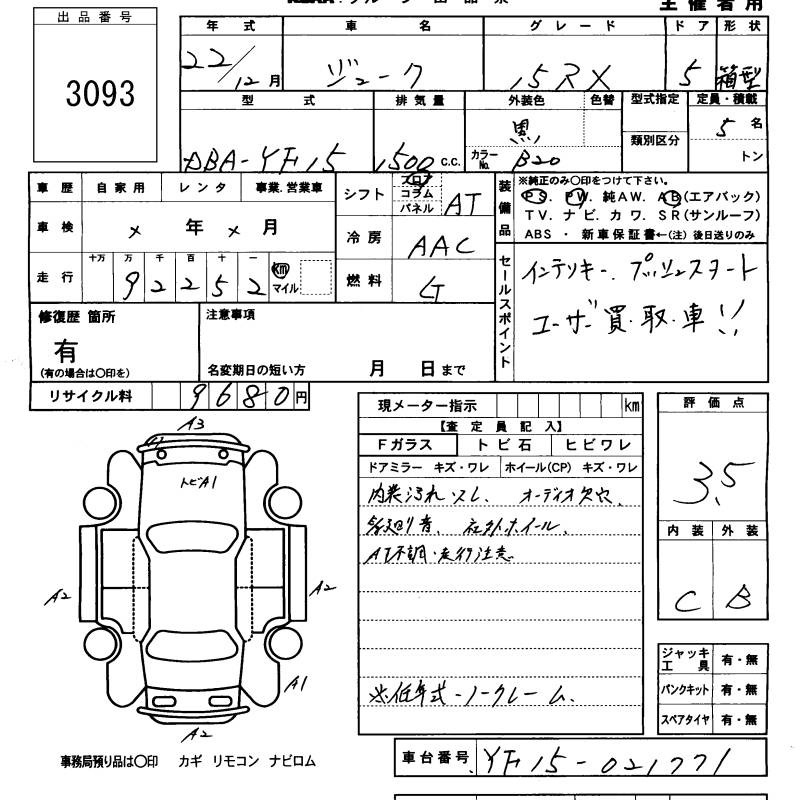 主催者用
出品番号
3093
年式 車名 グレード ドア 形状
22/12月 ジューク 15RX 5 箱型
型式 排気量 外装色 色替 型式指定 定員・積載
黒 類別区分 5名
DBA-YF15 1500 C.C. カラーNo. B20 トン
車歴 自家用 レンタ 事業.営業車
車検 × 年 × 月
走行 十万 万 千 百 十 一 km マイル
9 2 2 5 2
シフト フロア コラム パネル AT
冷房 AAC
燃料 G
装備品
※純正のみ〇印をつけて下さい。
PS. PW. 純AW. AB(エアバック)
TV. ナビ. カワ. SR(サンルーフ)
ABS ・ 新車保証書←(注) 後日送りのみ
セールスポイント
インテリキー. プッシュスタート
ユーザー買.取.車!!
修復歴 箇所
有
(有の場合は〇印を)
注意事項
名変期日の短い方 月 日まで
リサイクル料 9680円
現メーター指示 km
【査定員記入】
Fガラス トビ石 ヒビワレ
ドアミラー キズ・ワレ ホイール(CP) キズ・ワレ
内装汚れ.スレ. オーディオ欠穴.
社外ホイール.
AT不調.走行注意
※低年式-ノークレーム.
評価点
3.5
内装 外装
C B
A3
トビA1
A2 A2
A1
A2
ジャッキ工具 有・無
パンクキット 有・無
スペアタイヤ 有・無
事務局預り品は〇印 カギ リモコン ナビロム
車台番号 YF15-021771